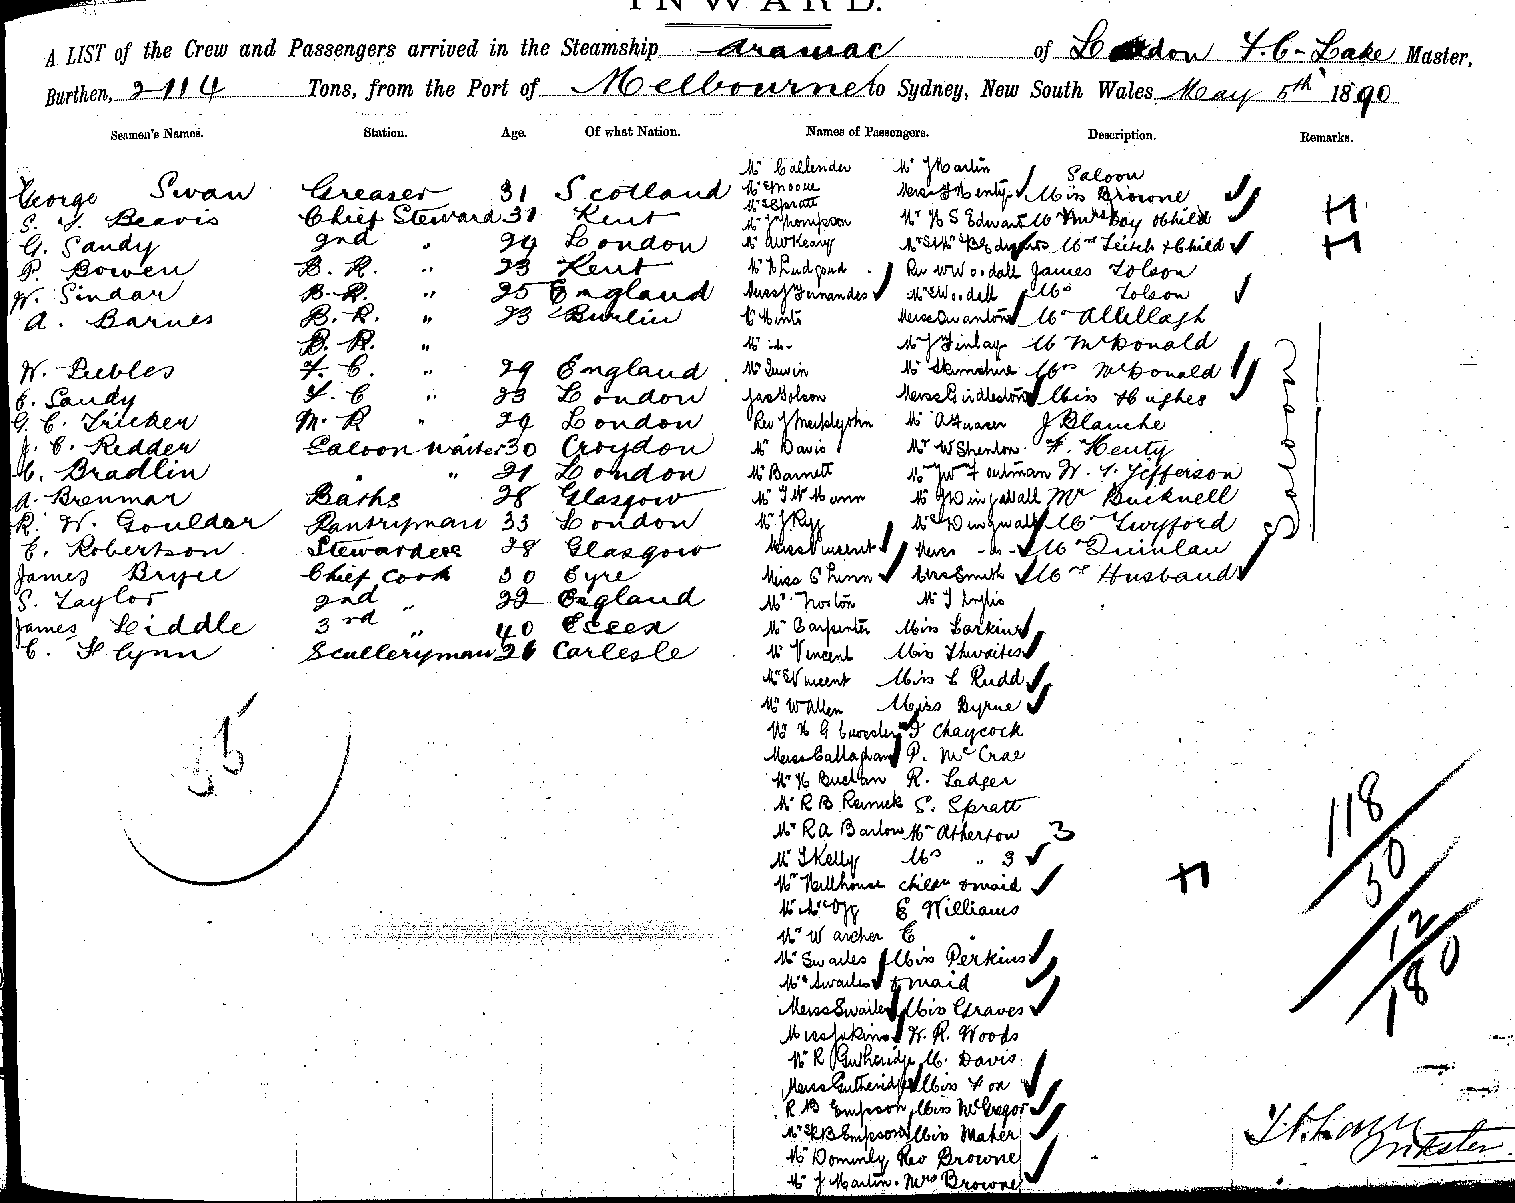 INWARD.
A LIST of the Crew and Passengers arrived in the Steamship Aramac of London F. C. Lake Master,
Burthen, 2114 Tons, from the Port of Melbourne to Sydney, New South Wales May 5th 1890
Seamen's Names. Station. Age. Of what Nation. Names of Passengers. Description. Remarks.
George Swan Greaser 31 Scotland
S. J. Beavis Chief Steward 31 Kent
G. Sandy 2nd " 29 London
P. Bowen B. R. " 23 Kent
W. Sindar B. R. " 25 England
A. Barnes B. R. " 23 Burlin
B. R. "
W. Peebles F. C. " 29 England
C. Sandy F. C " 23 London
G. C. Tricker M. R " 29 London
J. C. Redder Saloon Waiter 30 Croydon
C. Bradlin " " 21 London
A. Brenmar Baths 28 Glasgow
R. W. Goulder Pantryman 33 London
C. Robertson Stewardess 28 Glasgow
James Bryce Chief Cook 30 Eyre
S. Taylor 2nd " 22 England
James Liddle 3rd " 40 Essex
C. Flynn Scullerymann 26 Carlesle
55
Mr Callender
Mr E Moore
Mr E Spratt
Mr J Thompson
Mr A W Keary
Miss J Fernandes
Mr Irwin
Jas Tolson
Mr Davis
Mr Barnett
Mr T W Mann
Miss Vincent
Miss E Flinn
Mr Norton
Mr Carpenter
Mr Vincent
Mr E Vincent
Mr W Allen
Miss Callaghan
Mr H Buchan
Mr R B Rennick
Mr R A Barlow
Mr T Kelly
Mr Hillhouse
Mr W Archer
Mr Swailes
Mrs Swailes
Miss Swailes
Miss Jakins
Mr R Gutheridge
Miss Gutheridge
R B Empson
Mrs R B Empson
Mr J Martin
Mr J Martin
Miss F Henty
Mr H S Edwards
Rev W Woodall
Mrs E Woodall
Miss Swanton
Mr J Finlay
Miss Girdlestone
Mr A Fraser
Mr W Shenton
Mr J Dingwall
Mrs Dingwall
Miss -do-
Mrs Smith
Miss Larkins
Miss Thwaites
Miss L Rudd
Miss Byrne
F Chaycock
P. McCrae
R. Ledger
S. Spratt
Mr Atherton 3
Mrs " 3
child & maid
E Williams
C "
Miss Perkins
& maid
Miss Graves
W. R. Woods
M. Davis
Miss Fox
Miss McGregor
Miss Maher
Rev Browne
Mrs Browne
Saloon
Miss Browne
Mr & Mrs Day & Child
Mrs Leitch & Child
James Tolson
Mrs Tolson
Mr McDonald
Mrs McDonald
Miss Hughes
J Blanche
F. Henty
W. S. Jefferson
Mr Bucknell
Mr Twyford
Mr Quinlan
Mrs Husband
Saloon
118
50
12
180